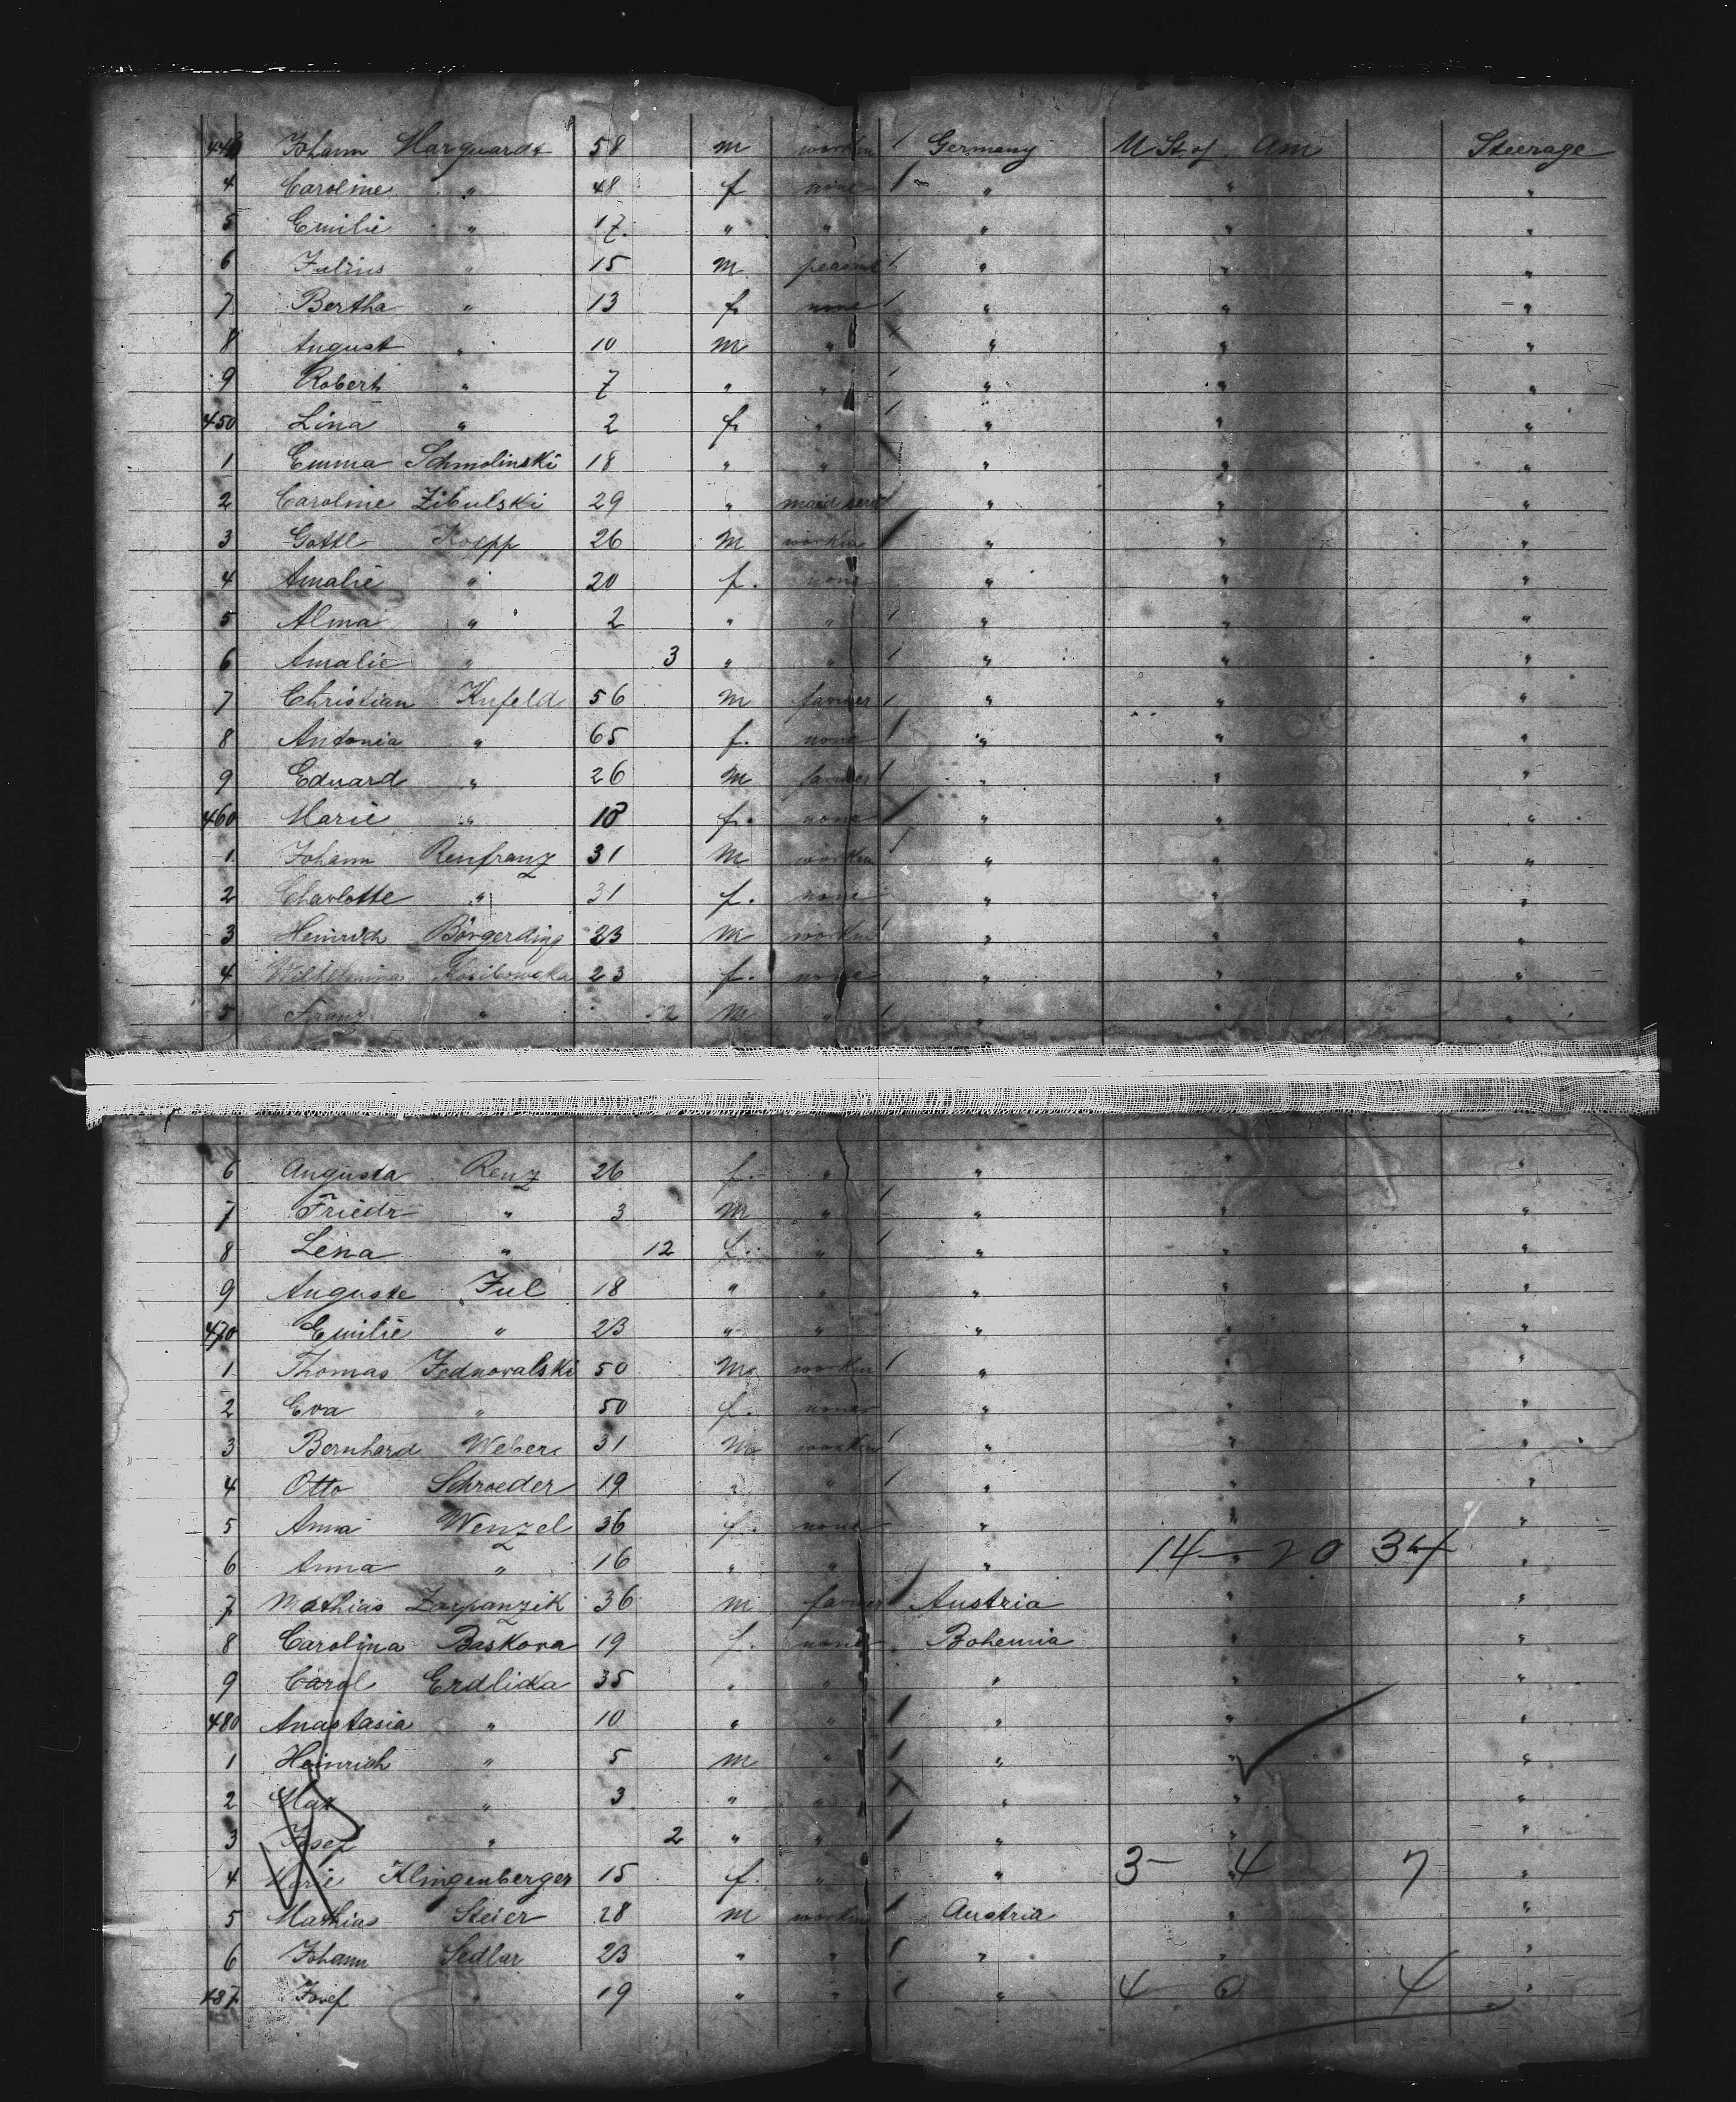 443 Johann Marquardt 58 m workm / Germany U St. of Am Steerage
4 Caroline " 48 f none / " " "
5 Emilie " 17 " " " " "
6 Julius " 15 m peasant / " " "
7 Bertha " 13 f none / " " "
8 August " 10 m " / " " "
9 Robert " 7 " " / " " "
450 Lina " 2 f. " / " " "
1 Emma Schmolinski 18 " " " " "
2 Caroline Zibulski 29 " maid serv " " "
3 Gottl Koepp 26 m workm / " " "
4 Amalie " 20 f. none " " "
5 Alma " 2 " " / " " "
6 Amalie " 3 " " / " " "
7 Christian Kufeld 56 m farmer / " " "
8 Antonia " 65 f. none / " " "
9 Eduard " 26 m farmer / " " "
460 Marie " 18 f. none / " " "
1 Johann Renfranz 31 m workm / " " "
2 Charlotte " 31 f. none " " "
3 Heinrich Börgerding 23 m workm / " " "
4 Wilhelmina 23 f. none " " "
5 Franz " m " / " " "
6 Augusta Renz 26 f. " " " "
7 Friedr " 3 m " / " " "
8 Lena " 12 f. " / " " "
9 Auguste Jul 18 " " " " "
470 Emilie " 23 " " " " "
1 Thomas Jednowalski 50 m workm / " " "
2 Eva " 50 f. none " " "
3 Bernhard Weber 31 m workm / " " "
4 Otto Schroeder 19 " " / " " "
5 Anna Wenzel 36 f. none " " "
6 Anna " 16 " " " 14 — 20 34 "
7 Mathias Zarpanzik 36 m farmer / Austria " "
8 Carolina Baskova 19 f. none Bohemia " "
9 Carol Erdlika 35 " " " " "
480 Anastasia " 10 " " / " " "
1 Heinrich " 5 m " / " " "
2 Max " 3 " " / " " "
3 Josef " 2 " " / " " "
4 Marie Klingenberger 15 f. " " 3 — 4 7 "
5 Mathias Steier 28 m workm / Austria " "
6 Johann Sedlar 23 " " / " " "
487 Josef " 19 " " / " 4 0 4 "